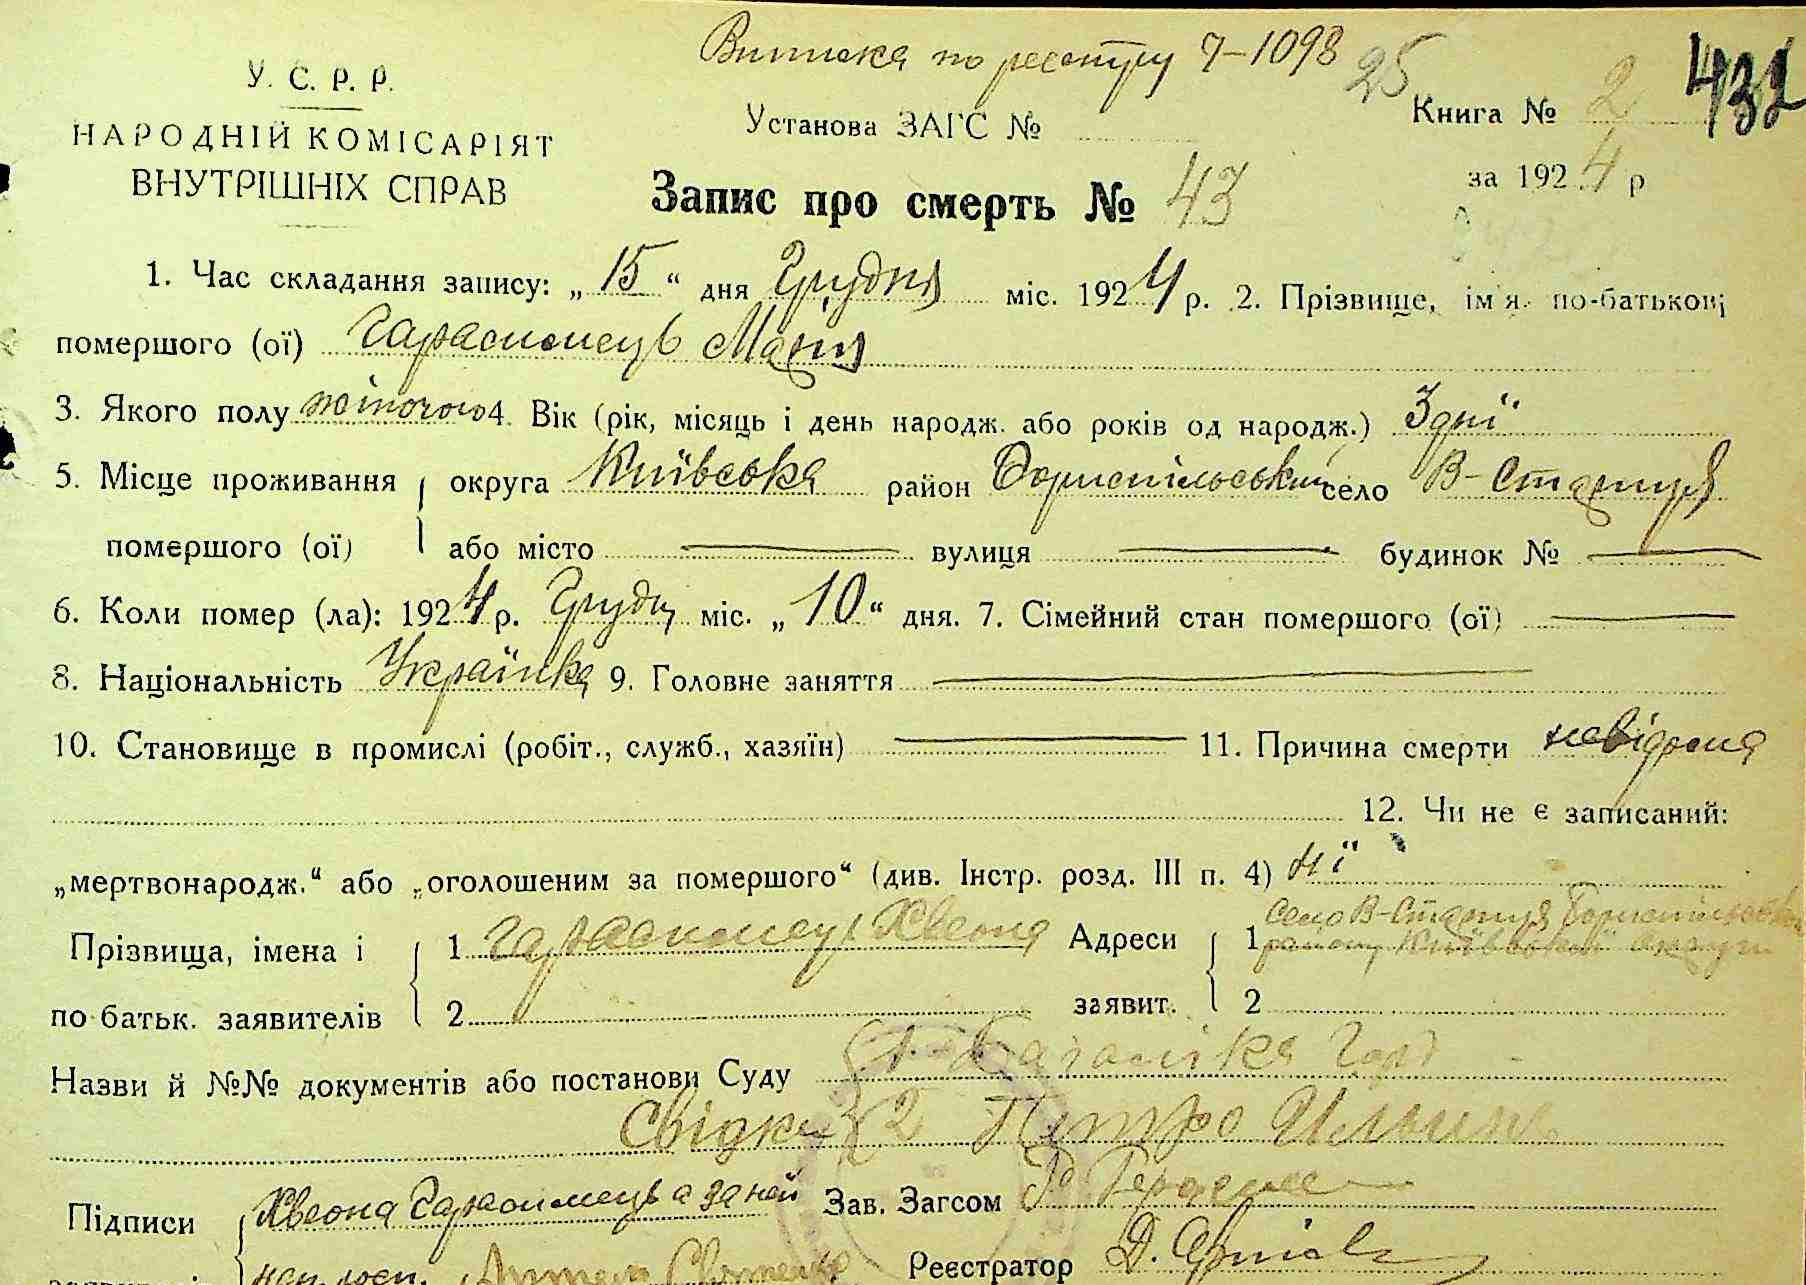 Виписка по реестру 7-1098
25
У. С. Р. Р.
НАРОДНІЙ КОМІСАРІЯТ
ВНУТРІШНІХ СПРАВ
Установа ЗАГС №
Книга № 2 432
за 1924 р
Запис про смерть № 43
1. Час складання запису: „15“ дня Грудня міс. 1924 р. 2. Прізвище, ім'я, по-батькові
помершого (ої) Гарасимець Марія
3. Якого полу жіночого 4. Вік (рік, місяць і день народж. або років од народж.) 3 дні
5. Місце проживання округа Київська район Бориспільський село В-Стариця
помершого (ої) або місто — вулиця — будинок № —
6. Коли помер (ла): 1924 р. Грудн міс. „10“ дня. 7. Сімейний стан помершого (ої) —
8. Національність Українка 9. Головне заняття —
10. Становище в промислі (робіт., служб., хазяїн) — 11. Причина смерти невідома
12. Чи не є записаний:
„мертвонародж.“ або „оголошеним за помершого“ (див. Інстр. розд. III п. 4) Ні
Прізвища, імена і 1 Гарасимець Хвеона Адреси 1 село В-Стариця Бориспільського
району Київської округи
по батьк. заявителів 2 заявит. 2
Назви й №№ документів або постанови Суду 1.
Свідки 2 Петро
Підписи Хвеона Гарасимець а за неї Зав. Загсом
Реєстратор Д.